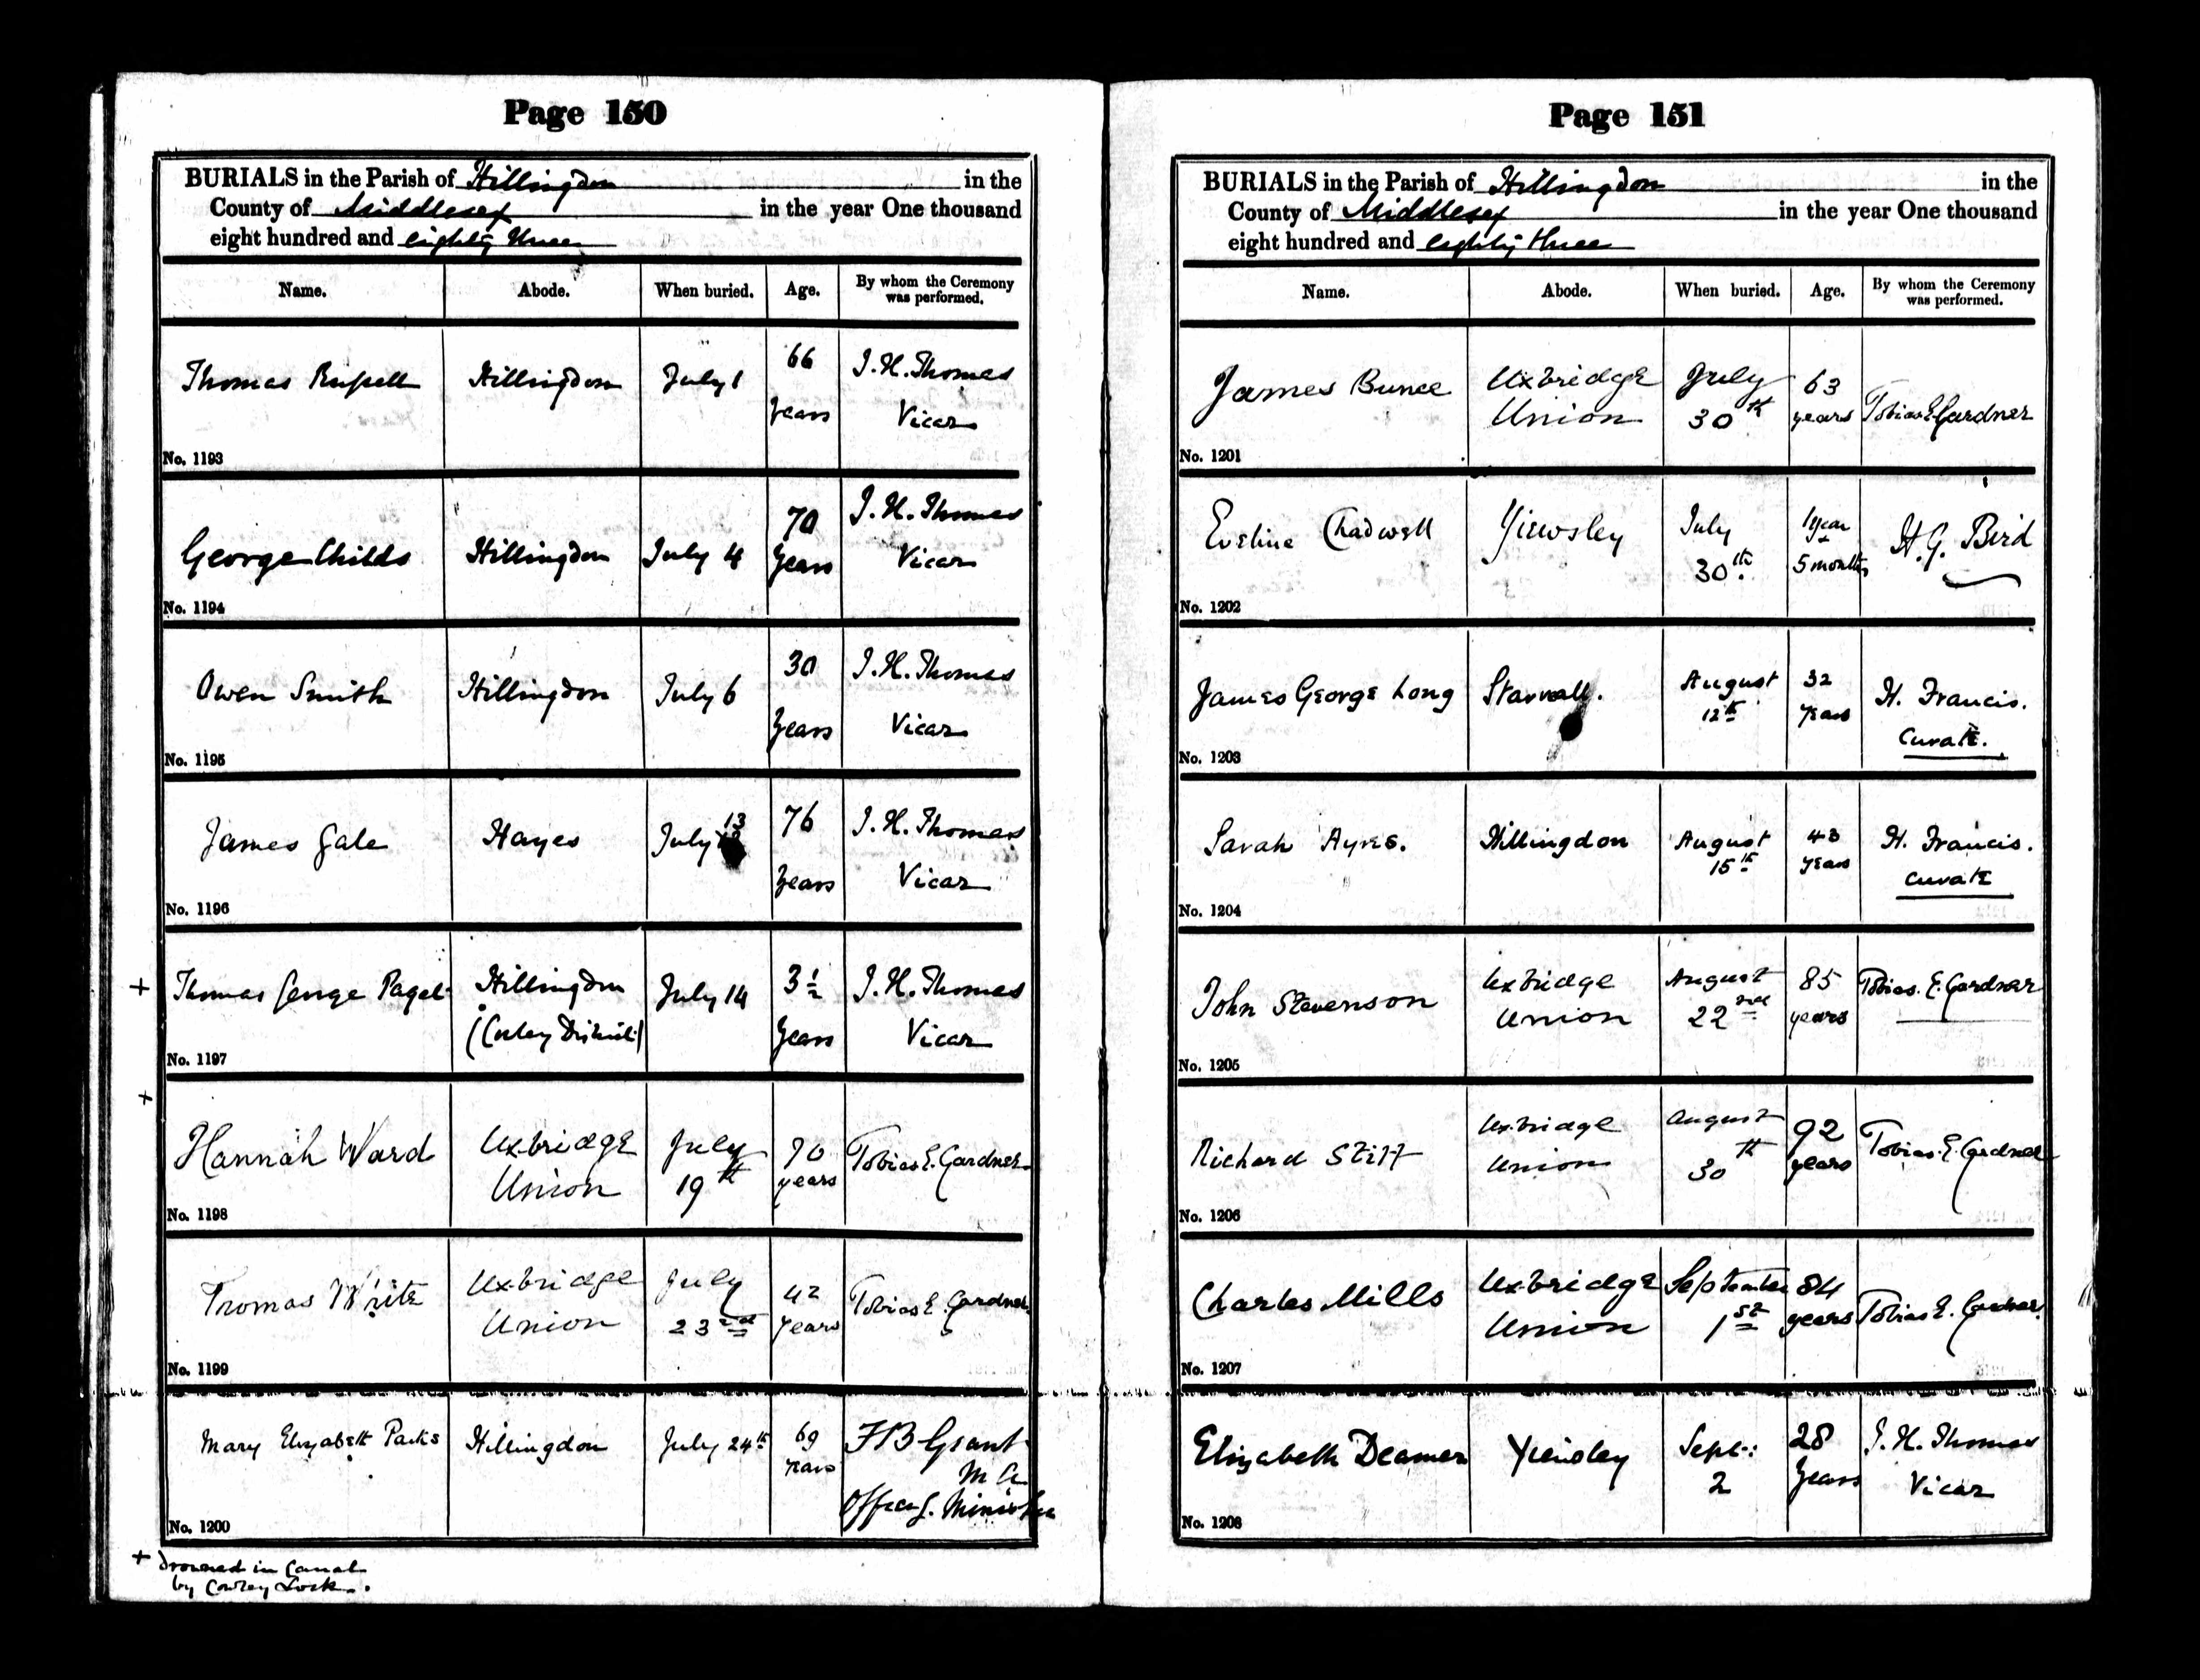 Page 150
BURIALS in the Parish of Hillingdon in the
County of Middlesex in the year One thousand
eight hundred and eighty three
Name. Abode. When buried. Age. By whom the Ceremony was performed.
Thomas Russell Hillingdon July 1 66 years J. H. Thomas Vicar
No. 1193
George Childs Hillingdon July 4 70 years J. H. Thomas Vicar
No. 1194
Owen Smith Hillingdon July 6 30 years J. H. Thomas Vicar
No. 1195
James Gale Hayes July 13 76 years J. H. Thomas Vicar
No. 1196
+ Thomas George Paget Hillingdon (Cowley District) July 14 3½ years J. H. Thomas Vicar
No. 1197
+
Hannah Ward Uxbridge Union July 19th 70 years Tobias E. Gardner
No. 1198
Thomas Write Uxbridge Union July 23rd 42 years Tobias E. Gardner
No. 1199
Mary Elizabeth Parks Hillingdon July 24th 69 years F B Grant M A Officg. Minister
No. 1200
+ Drowned in Canal
by Cowley Lock.
Page 151
BURIALS in the Parish of Hillingdon in the
County of Middlesex in the year One thousand
eight hundred and eighty three
Name. Abode. When buried. Age. By whom the Ceremony was performed.
James Bunce Uxbridge Union July 30th 63 years Tobias E. Gardner
No. 1201
Eveline Chadwell Yiewsley July 30th 1 year + 5 months H. G. Bird
No. 1202
James George Long August 12th 32 years H. Francis. Curate.
No. 1203
Sarah Ayres. Hillingdon August 15th 43 years H. Francis. Curate
No. 1204
John Stevenson Uxbridge Union August 22nd 85 years Tobias. E. Gardner
No. 1205
Richard Stiff Uxbridge Union August 30th 92 years Tobias. E. Gardner
No. 1206
Charles Mills Uxbridge Union September 1st 84 years Tobias E. Gardner
No. 1207
Elizabeth Deamer Yiewsley Sept: 2 28 years J. H. Thomas Vicar
No. 1208